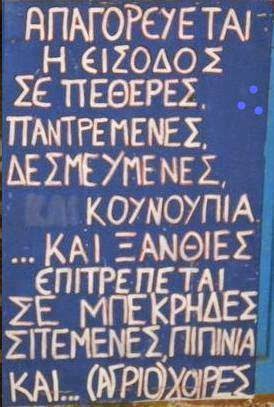 ΑΠΑΓΟΡΕΥΕΤΑΙ
Η ΕΙΣΟΔΟΣ
ΣΕ ΠΕΘΕΡΕΣ,
ΠΑΝΤΡΕΜΕΝΕΣ,
ΔΕΣΜΕΥΜΕΝΕΣ,
ΚΑΙ ΚΟΥΝΟΥΠΙΑ
... ΚΑΙ ΞΑΝΘΙΕΣ
ΕΠΙΤΡΕΠΕΤΑΙ
ΣΕ ΜΠΕΚΡΗΔΕΣ
ΣΙΤΕΜΕΝΕΣ, ΠΙΠΙΝΙΑ
ΚΑΙ... (ΑΓΡΙΟ)ΧΟΙΡΕΣ